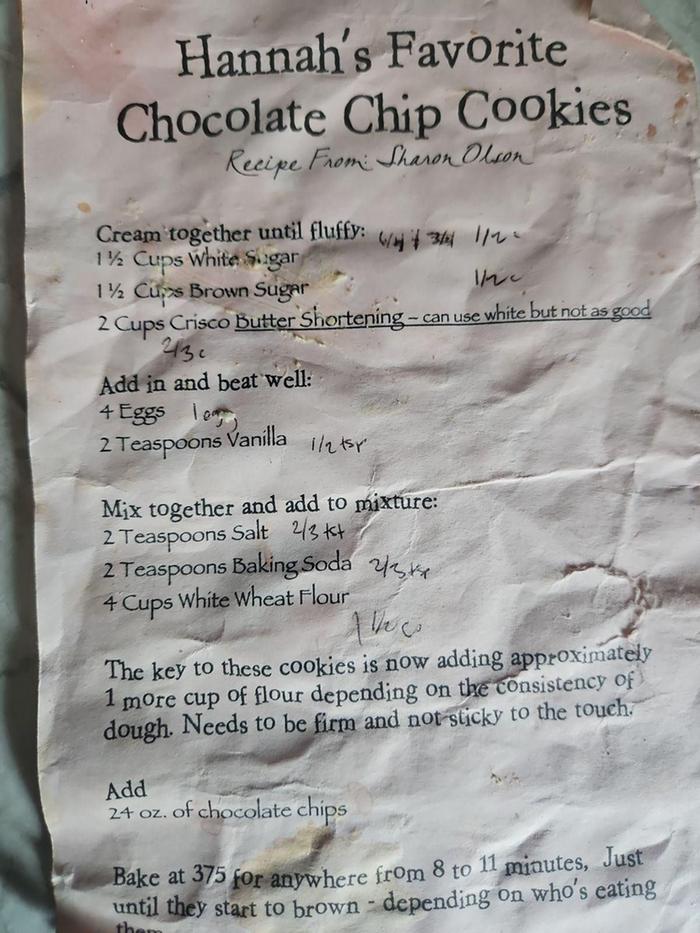 Hannah's Favorite
Chocolate Chip Cookies
Recipe From: Sharon Olson
Cream together until fluffy: 1/2 c
1 ½ Cups White Sugar
1 ½ Cups Brown Sugar 1/2 c
2 Cups Crisco Butter Shortening – can use white but not as good
2/3 c
Add in and beat well:
4 Eggs 1 egg
2 Teaspoons Vanilla 1/2 tsp
Mix together and add to mixture:
2 Teaspoons Salt 2/3
2 Teaspoons Baking Soda 2/3
4 Cups White Wheat Flour
1 1/2 c
The key to these cookies is now adding approximately
1 more cup of flour depending on the consistency of
dough. Needs to be firm and not sticky to the touch.
Add
24 oz. of chocolate chips
Bake at 375 for anywhere from 8 to 11 minutes, Just
until they start to brown - depending on who's eating
them